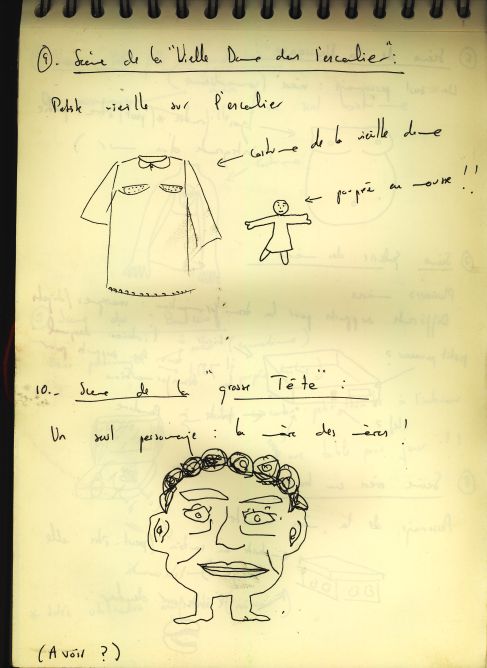 9. Scène de la "Vielle Dame dans l'escalier":
Petite vieille sur l'escalier
← costume de la vieille dame
← poupée en mousse !!
10.- Scène de la "grosse Tête" :
Un seul personnage : la mère des mères !
(A voir ?)